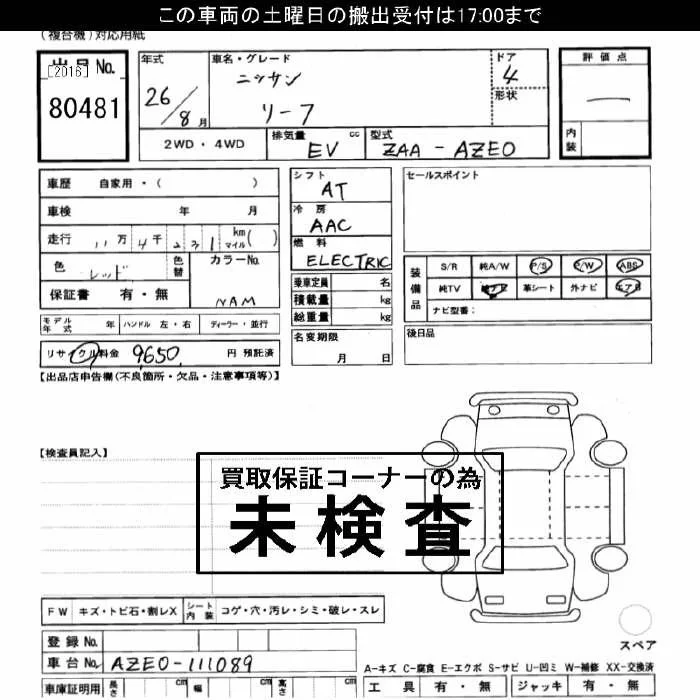 この車両の土曜日の搬出受付は17:00まで
(複合機)対応用紙
出品No. [2016] 80481
年式 26/8月
車名・グレード ニッサン リーフ
ドア 4
形状
評価点 —
内装
2WD・4WD
排気量 cc EV
型式 ZAA-AZE0
車歴 自家用・( )
車検 年 月
走行 11万4千231 km マイル( )
色 レッド 色替
カラーNo. NAM
保証書 有・無
シフト AT
冷房 AAC
燃料 ELECTRIC
乗車定員 名
積載量 kg
総重量 kg
セールスポイント
装備品 S/R 純A/W P/S P/W ABS
純TV 純ナビ 革シート 外ナビ エアB
ナビ型番:
モデル年式 年 ハンドル 左・右 ディーラー・並行
名変期限 月 日
後日品
リサイクル料金 9650 円 預託済
【出品店申告欄(不良箇所・欠品・注意事項等)】
【検査員記入】
買取保証コーナーの為
未検査
FW キズ・トビ石・割レX シート内装 コゲ・穴・汚レ・シミ・破レ・スレ
登録No.
車台No. AZE0-111089
スペア
A-キズ C-腐食 E-エクボ S-サビ U-凹ミ W-補修 XX-交換済
車庫証明用 長さ cm 幅 cm 高さ cm
工具 有・無 ジャッキ 有・無